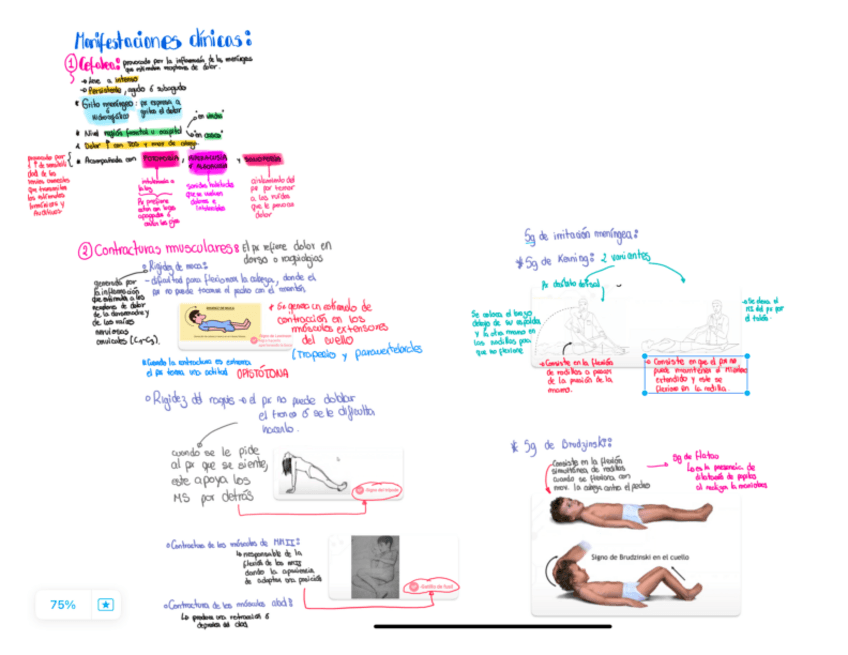 Manifestaciones clínicas:
① Cefalea: provocado por la inflamación de las meninges
que estimulan receptores de dolor.
→ Leve a intenso
→ Persistente, agudo ó subagudo
Grito meníngeo: px expresa a
ó hidrocefálico grita el dolor
Nivel región frontal u occipital
"en vincha"
"en casco"
Dolor ↑ con TOS y mov de cabeza
Acompañado con FOTOFOBIA, y
provocado por
↑ de sensibili
dad de los
que transmiten
los estímulos
luminosos y
auditivos
intolerancia a
la luz
Px prefiere
estar en lugar
apagados ó
sonidos habituales
que se vuelven
dolores e
intolerables
aislamiento del
px por temor
a los ruidos
que le provocan
dolor
② Contracturas musculares: El px refiere dolor en
dorso o raquialgias
Rigidez de nuca:
- dificultad para flexionar la cabeza, donde el
px no puede tocarse el pecho con el mentón
generada por
la inflamación
que estimula a los
receptores de dolor
de la duramadre y
de las raíces
nerviosas
cervicales (C1-C3).
RIGIDEZ DE NUCA
* Se genera un estímulo de
contracción en los
músculos extensores
del cuello
(Trapecio y paravertebrales
*Cuando la contractura es extrema
el px toma una actitud OPISTÓTONA
○ Rigidez del raquis → el px no puede doblar
el tronco ó se le dificulta
hacerlo.
cuando se le pide
al px que se siente,
este apoya los
MS por detrás
Signo del trípode
○ Contractura de los músculos de MMII:
↳ responsable de la
flexión de los MII
dando la apariencia
de adoptar una posición
Gatillo de fusil
○ Contractura de los músculos abd:
Lo produce una retracción ó
depresión del abd
75%
Sg de irritación meníngea:
* Sg de Kerning: 2 variantes
Px decúbito dorsal
Se coloca el brazo
debajo de su espalda
y la otra mano en
las rodillas para
que no flexione
→ Consiste en la flexión
de rodillas a pesar
de la presión de la
mano.
→ Se eleva el
MI del px por
el talón.
→ Consiste en que el px no
puede mantener el miembro
extendido y este se
flexiona en la rodilla.
* Sg de Brudzinski:
Consiste en la flexión
simultánea de rodillas
cuando se flexiona con
mov. la cabeza contra el pecho
Sg de Flatau
↳ es la presencia de
dilatación de pupilas
al realizar la maniobra
Signo de Brudzinski en el cuello